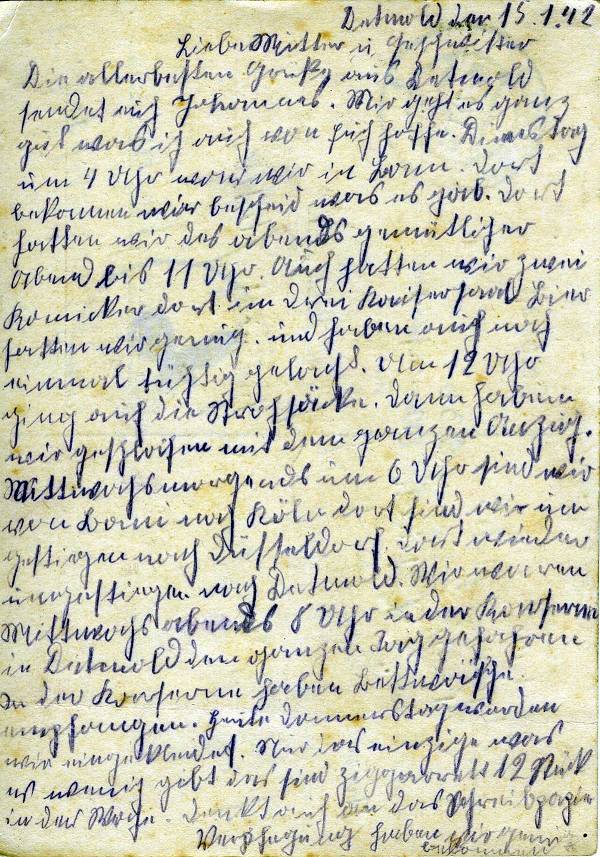 Detmold den 15.1.42
Liebe Mutter u Geschwister
Die allerbesten Grüße aus Detmold
sendet euch Johannes. Mir geht es ganz
gut was ich auch von euch hoffe. Dienstag
um 4 Uhr waren wir in Bonn. Dort
bekamen wir bescheid was es gab. Dort
hatten wir des abends gemütlicher
Abend bis 11 Uhr. Auch hatten wir zwei
Komicker dort im drei Kaisersaal Bier
hatten wir genug. und haben auch noch
einmal tüchtig gelacht. Um 12 Uhr
ging auf die Strohsäcke. Dann haben
wir geschlafen mit dem ganzen Anzug.
Mittwochsmorgends um 6 Uhr sind wir
von Bonn nach Köln dort sind wir um
gestiegen nach Düsseldorf, dort wieder
umgestiegen nach Detmold. Wir waren
Mittwochs abends 8 Uhr in der Kaserne
in Detmold den ganzen Tag gefahren
In der Kaserne haben Bettwäsche
empfangen. Heute Donnerstag wurden
wir eingekleidet. Nur das einzige was
es wenig gibt das sind ziggaretts 12 Stück
in der Woche. Denkt auch an das Schreibpapier
Verpflegung haben wir genug
bekommen